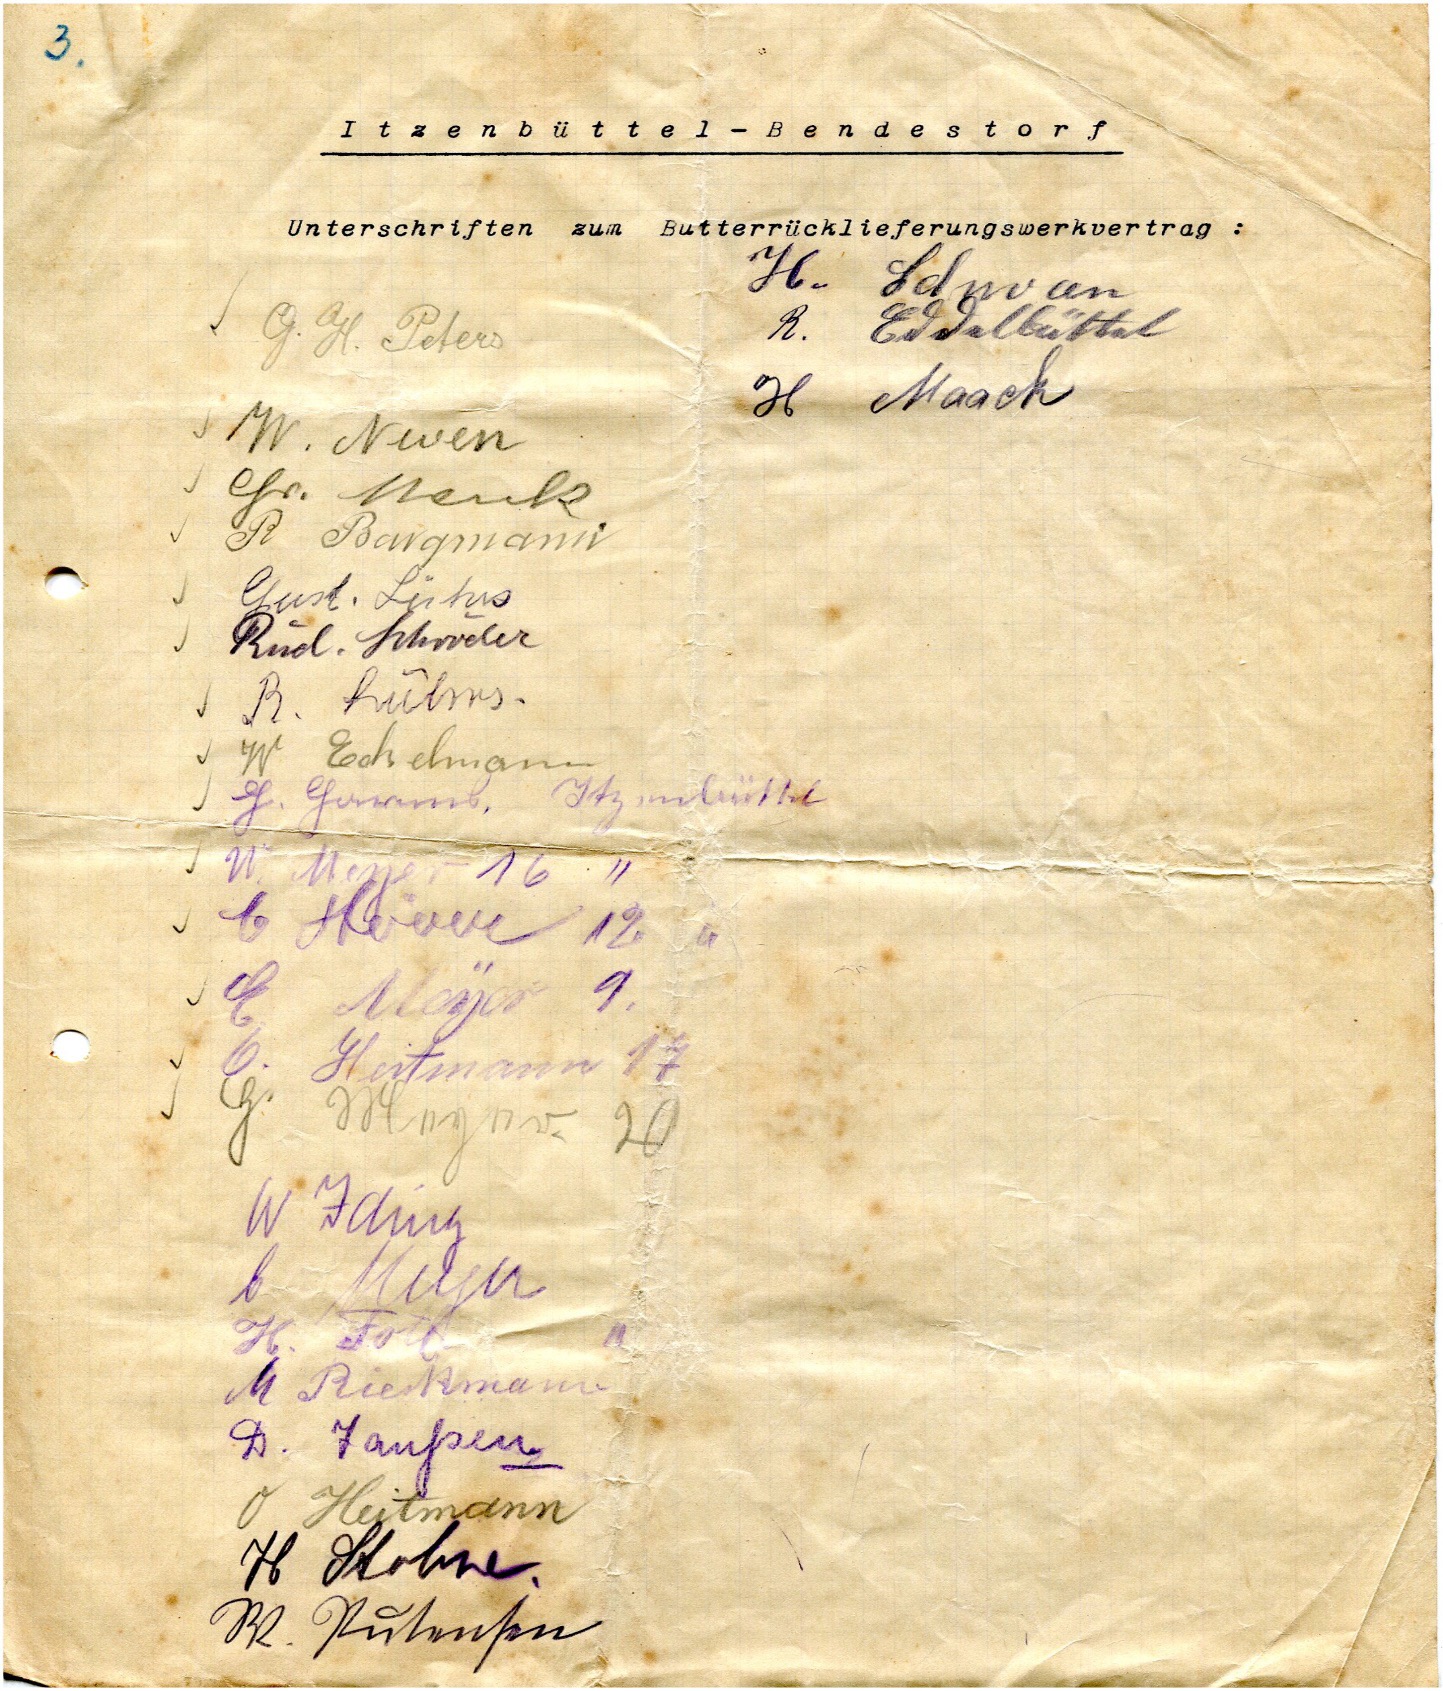 3.
Itzenbüttel-Bendestorf
Unterschriften zum Butterrücklieferungswerkvertrag:
G. H. Peters
W. Neven
Gr. Menk
R Bargmann
Gust. Lührs
Rud. Schröder
R. Lührs.
W Eckelmann
G. Itzenbüttel
W. Meyer 16 "
C 12. "
E Meÿer 9.
C. Heitmann 17
G. Meyer. 20
W Iding
C Meyer
H. "
M Rieckmann
D. Janßen
O Heitmann
H
W. Putensen
H.
R. Eddelbüttel
H Maack